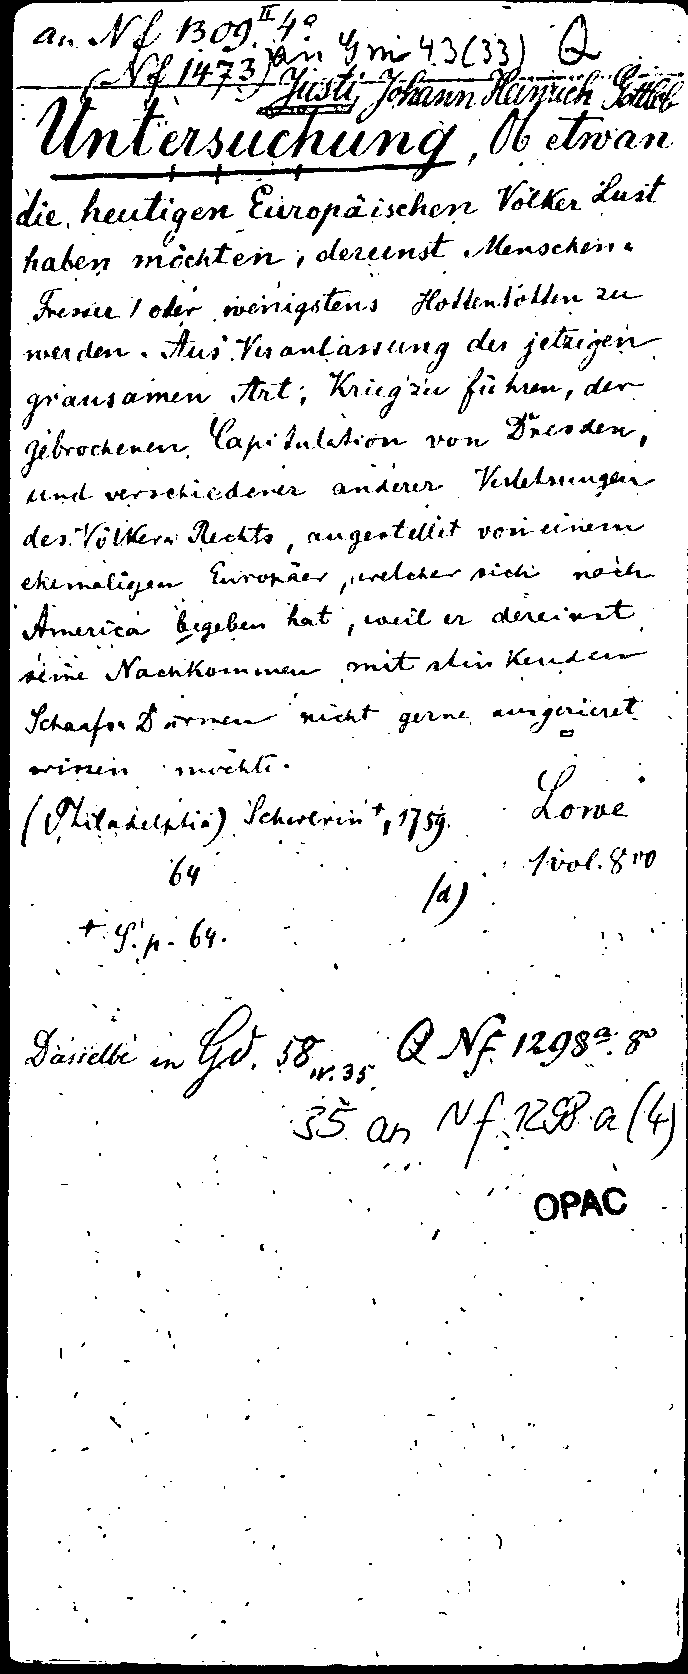 an Nf 1309.II 4°
(Nf 1473) an Gm 43(33) Q
Justi, Johann Heinrich Gottlob
Untersuchung, Ob etwan
die heutigen Europäischen Völker Lust
haben möchten, dereinst Menschen-
Fresser oder wenigstens Hottentotten zu
werden. Aus Veranlassung der jetzigen
grausamen Art, Krieg zu führen, der
gebrochenen Capitulation von Dresden,
und verschiedener anderer Verletzungen
des Völker-Rechts, angestellet von einem
ehemaligen Europäer, welcher sich nach
America begeben hat, weil er dereinst
seine Nachkommen mit stinkenden
Schaafs-Därmen nicht gerne ausgezieret
wissen möchte.
(Philadelphia) Schwerin +, 1759.
Lowe
64
1 vol. 8vo
(a)
+ S. p. 64.
Dasselbe in Gd. 58 nr. 35. Q Nf. 1298a. 8°
35 an Nf 1298 a (4)
OPAC